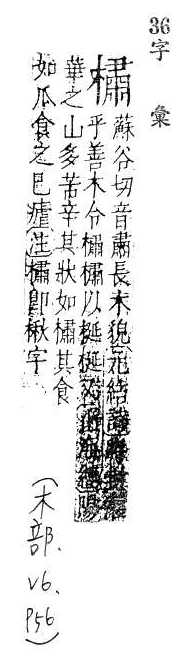 36 字彙
橚 蘇谷切音肅長木貌
乎善木令橚橚以梃梃又山海經陽
華之山多苦辛其狀如橚其食
如瓜食之已瘧注橚卽楸字
(木部. V6. P56)